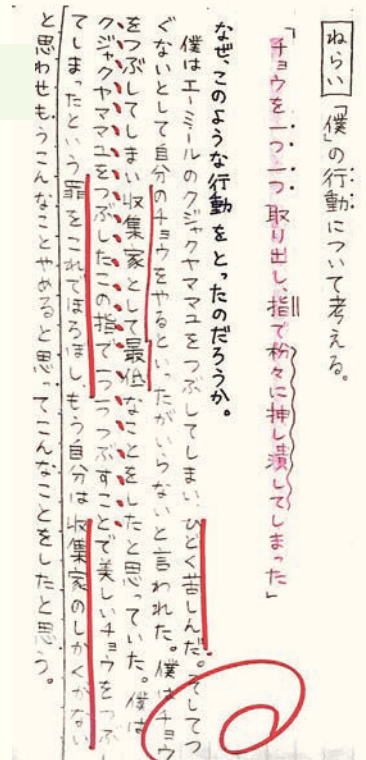 ねらい 「僕」の行動について考える。
「チョウを一つ一つ取り出し、指で粉々に押し潰してしまった」
なぜ、このような行動をとったのだろうか。
僕はエーミールのクジャクヤママユをつぶしてしまい、ひどく苦しんだ。そしてつ
ぐないとして自分のチョウをやるといったがいらないと言われた。僕はチョウ
をつぶしてしまい収集家として最低なことをしたと思っていた。僕は
クジャクヤママユをつぶしたこの指で一つ一つつぶすことで美しいチョウをつぶし
てしまったという罪をこれでほろぼし、もう自分は収集家のしかくがない
と思わせもうこんなことやめると思ってこんなことをしたと思う。